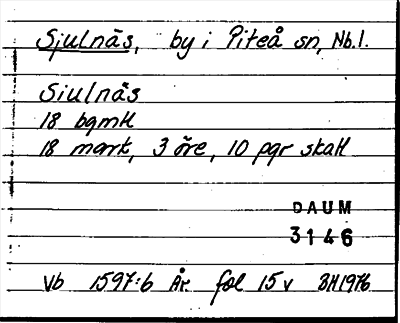 Sjulnäs, by i Piteå sn, Nb.l.
Siulnäs
18 bgmtl
18 mark, 3 öre, 10 pgr skatt
DAUM
3146
Vb 1597:6 År fol 15v BH1976